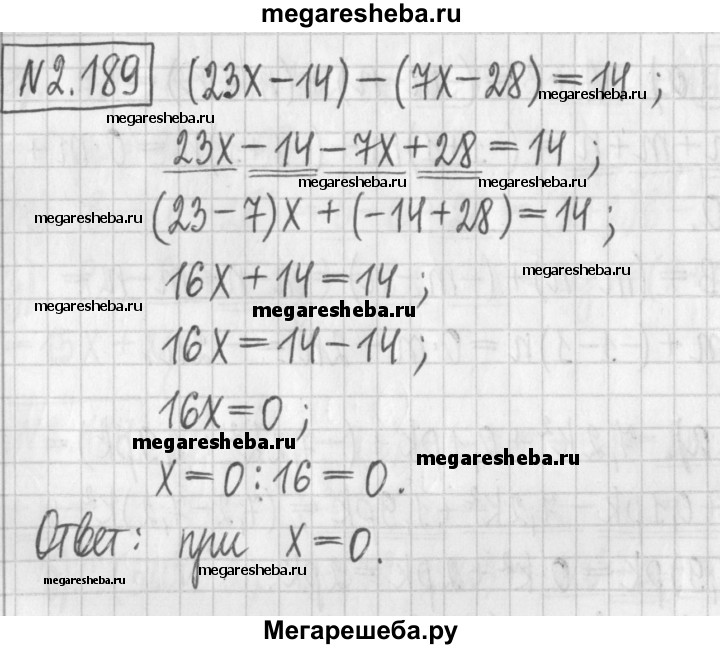 megaresheba.ru
№2.189 (23x-14)-(7x-28)=14;
megaresheba.ru
megaresheba.ru
23x-14-7x+28=14;
megaresheba.ru megaresheba.ru
megaresheba.ru (23-7)x+(-14+28)=14;
megaresheba.ru
16x+14=14;
megaresheba.ru
megaresheba.ru
16x=14-14;
16x=0;
megaresheba.ru
megaresheba.ru
x=0:16=0.
Ответ: при x=0.
megaresheba.ru
megaresheba.ru
Мегарешеба.ру